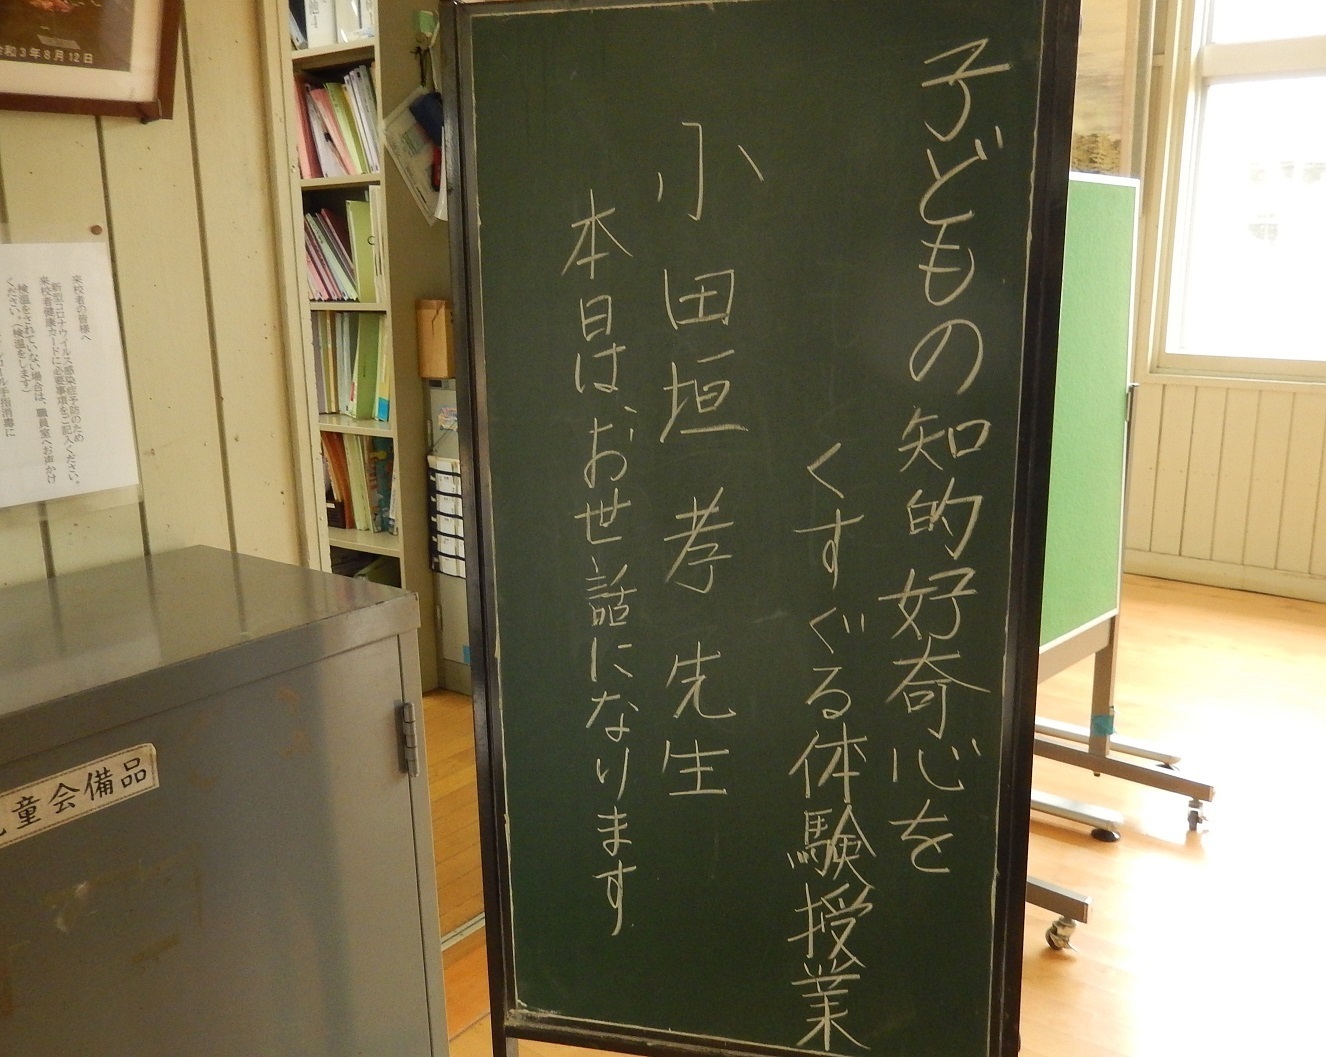 子どもの知的好奇心を
くすぐる体験授業
小田垣 孝 先生
本日はお世話になります
和3年8月12日
来校者の皆様へ
新型コロナウイルス感染症予防のため
来校者健康カードに必要事項をご記入ください。
検温をされていない場合は、職員室へお声かけ
ください。(検温をします)
童会備品